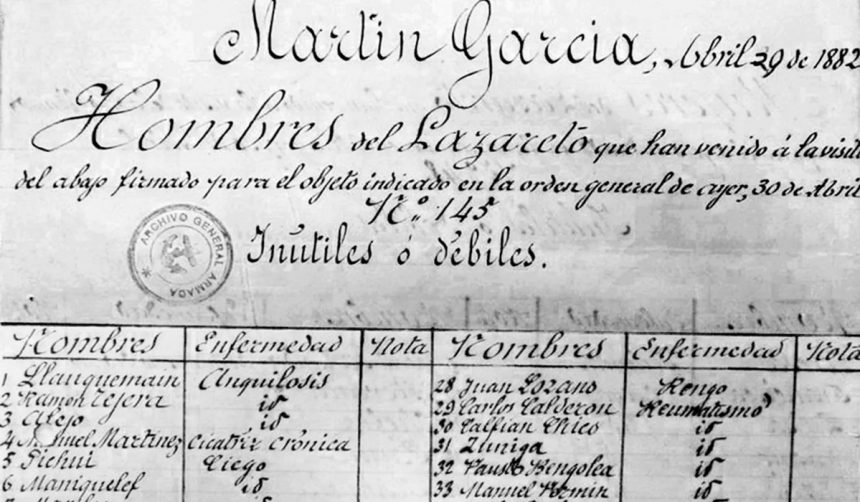 Martin Garcia, Abril 29 de 1882
Hombres del Lazareto que han venido á la visita
del abajo firmado para el objeto indicado en la orden general de ayer, 30 de Abril
Nº. 145
Inútiles ó débiles.
ARCHIVO GENERAL ARMADA
Nombres Enfermedad Nota Nombres Enfermedad Nota
1 Llauquemain Anquilosis 28 Juan Lozano Rengo
2 Ramon Tejera id 29 Carlos Calderon Reumatismo
3 Alejo id 30 Calfian Chico id
4 Manuel Martinez Cicatriz Crónica 31 Zuñiga id
5 Pichui Ciego 32 Fausto Rengolea id
6 Maniquelef id 33 Manuel id